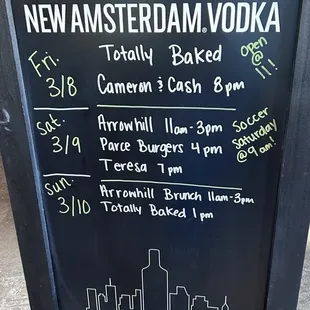 NEW AMSTERDAM. VODKA
Fri. Totally Baked
3/8 Cameron & Cash 8pm
Open
@
11!
Sat. Arrowhill 11am-3pm
3/9 Parce Burgers 4pm
Teresa 7pm
Soccer
Saturday
@9am!
Sun. Arrowhill Brunch 11am-3pm
3/10 Totally Baked 1pm